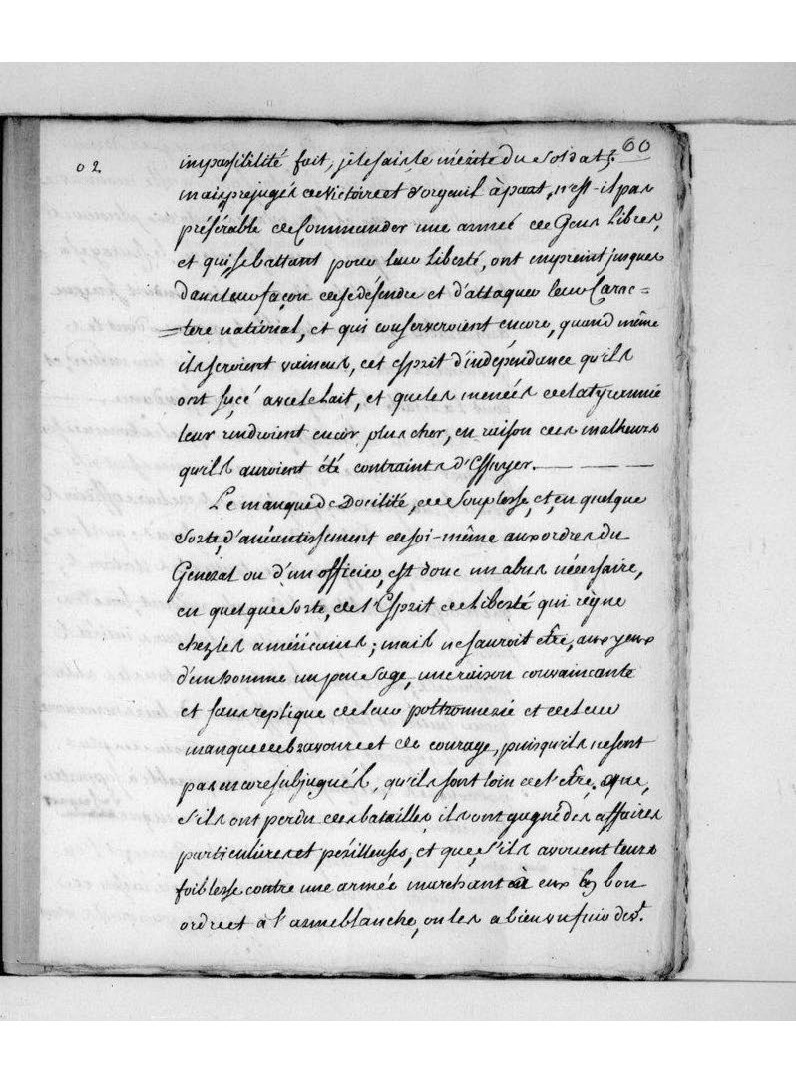 60
02
impossibilité fait, je le sais le mérite du Soldat;
mais prejugés de Victoire et d'orgeuil à part, n'est-il pas
préférable de Commander une armeé de Gens Libres,
et qui se battant pour leur Liberté, ont empreint jusques
dans leur façon de se défendre et d'attaquer leur Carac=
=tere national, et qui conserveroient encore, quand même
ils seroient vaincus, cet esprit d'indépendance qu'ils
ont sucé avec le Lait, et que les meneés de la tyrannie
leur rendroient encor plus cher, en raison des malheurs
qu'ils auroient été contraints d'Essuyer. — — —
Le manque de Docilité, de Souplesse, et, en quelque
Sorte, d'anéantissement de soi-même aux ordres du
General ou d'un officier, est donc un abus nécessaire,
en quelque Sorte, de l'Esprit de Liberté qui règne
chez les américains; mais ne sauroit être, aux yeux
d'un homme un peu Sage, une raison convaincante
et sans replique de leur poltronnerie et de leur
manque de bravoure et de courage, puisqu'ils ne sont
pas encore subjugués, qu'ils sont loin de l'être, que,
s'ils ont perdu des batailles, ils ont gagné des affaires
particulieres et périlleuses, et que, s'ils avouent leurs
foiblesse contre une armeé marchant à eux en bon
ordre et à l'arme blanche, on les a bien vu fuir devt.